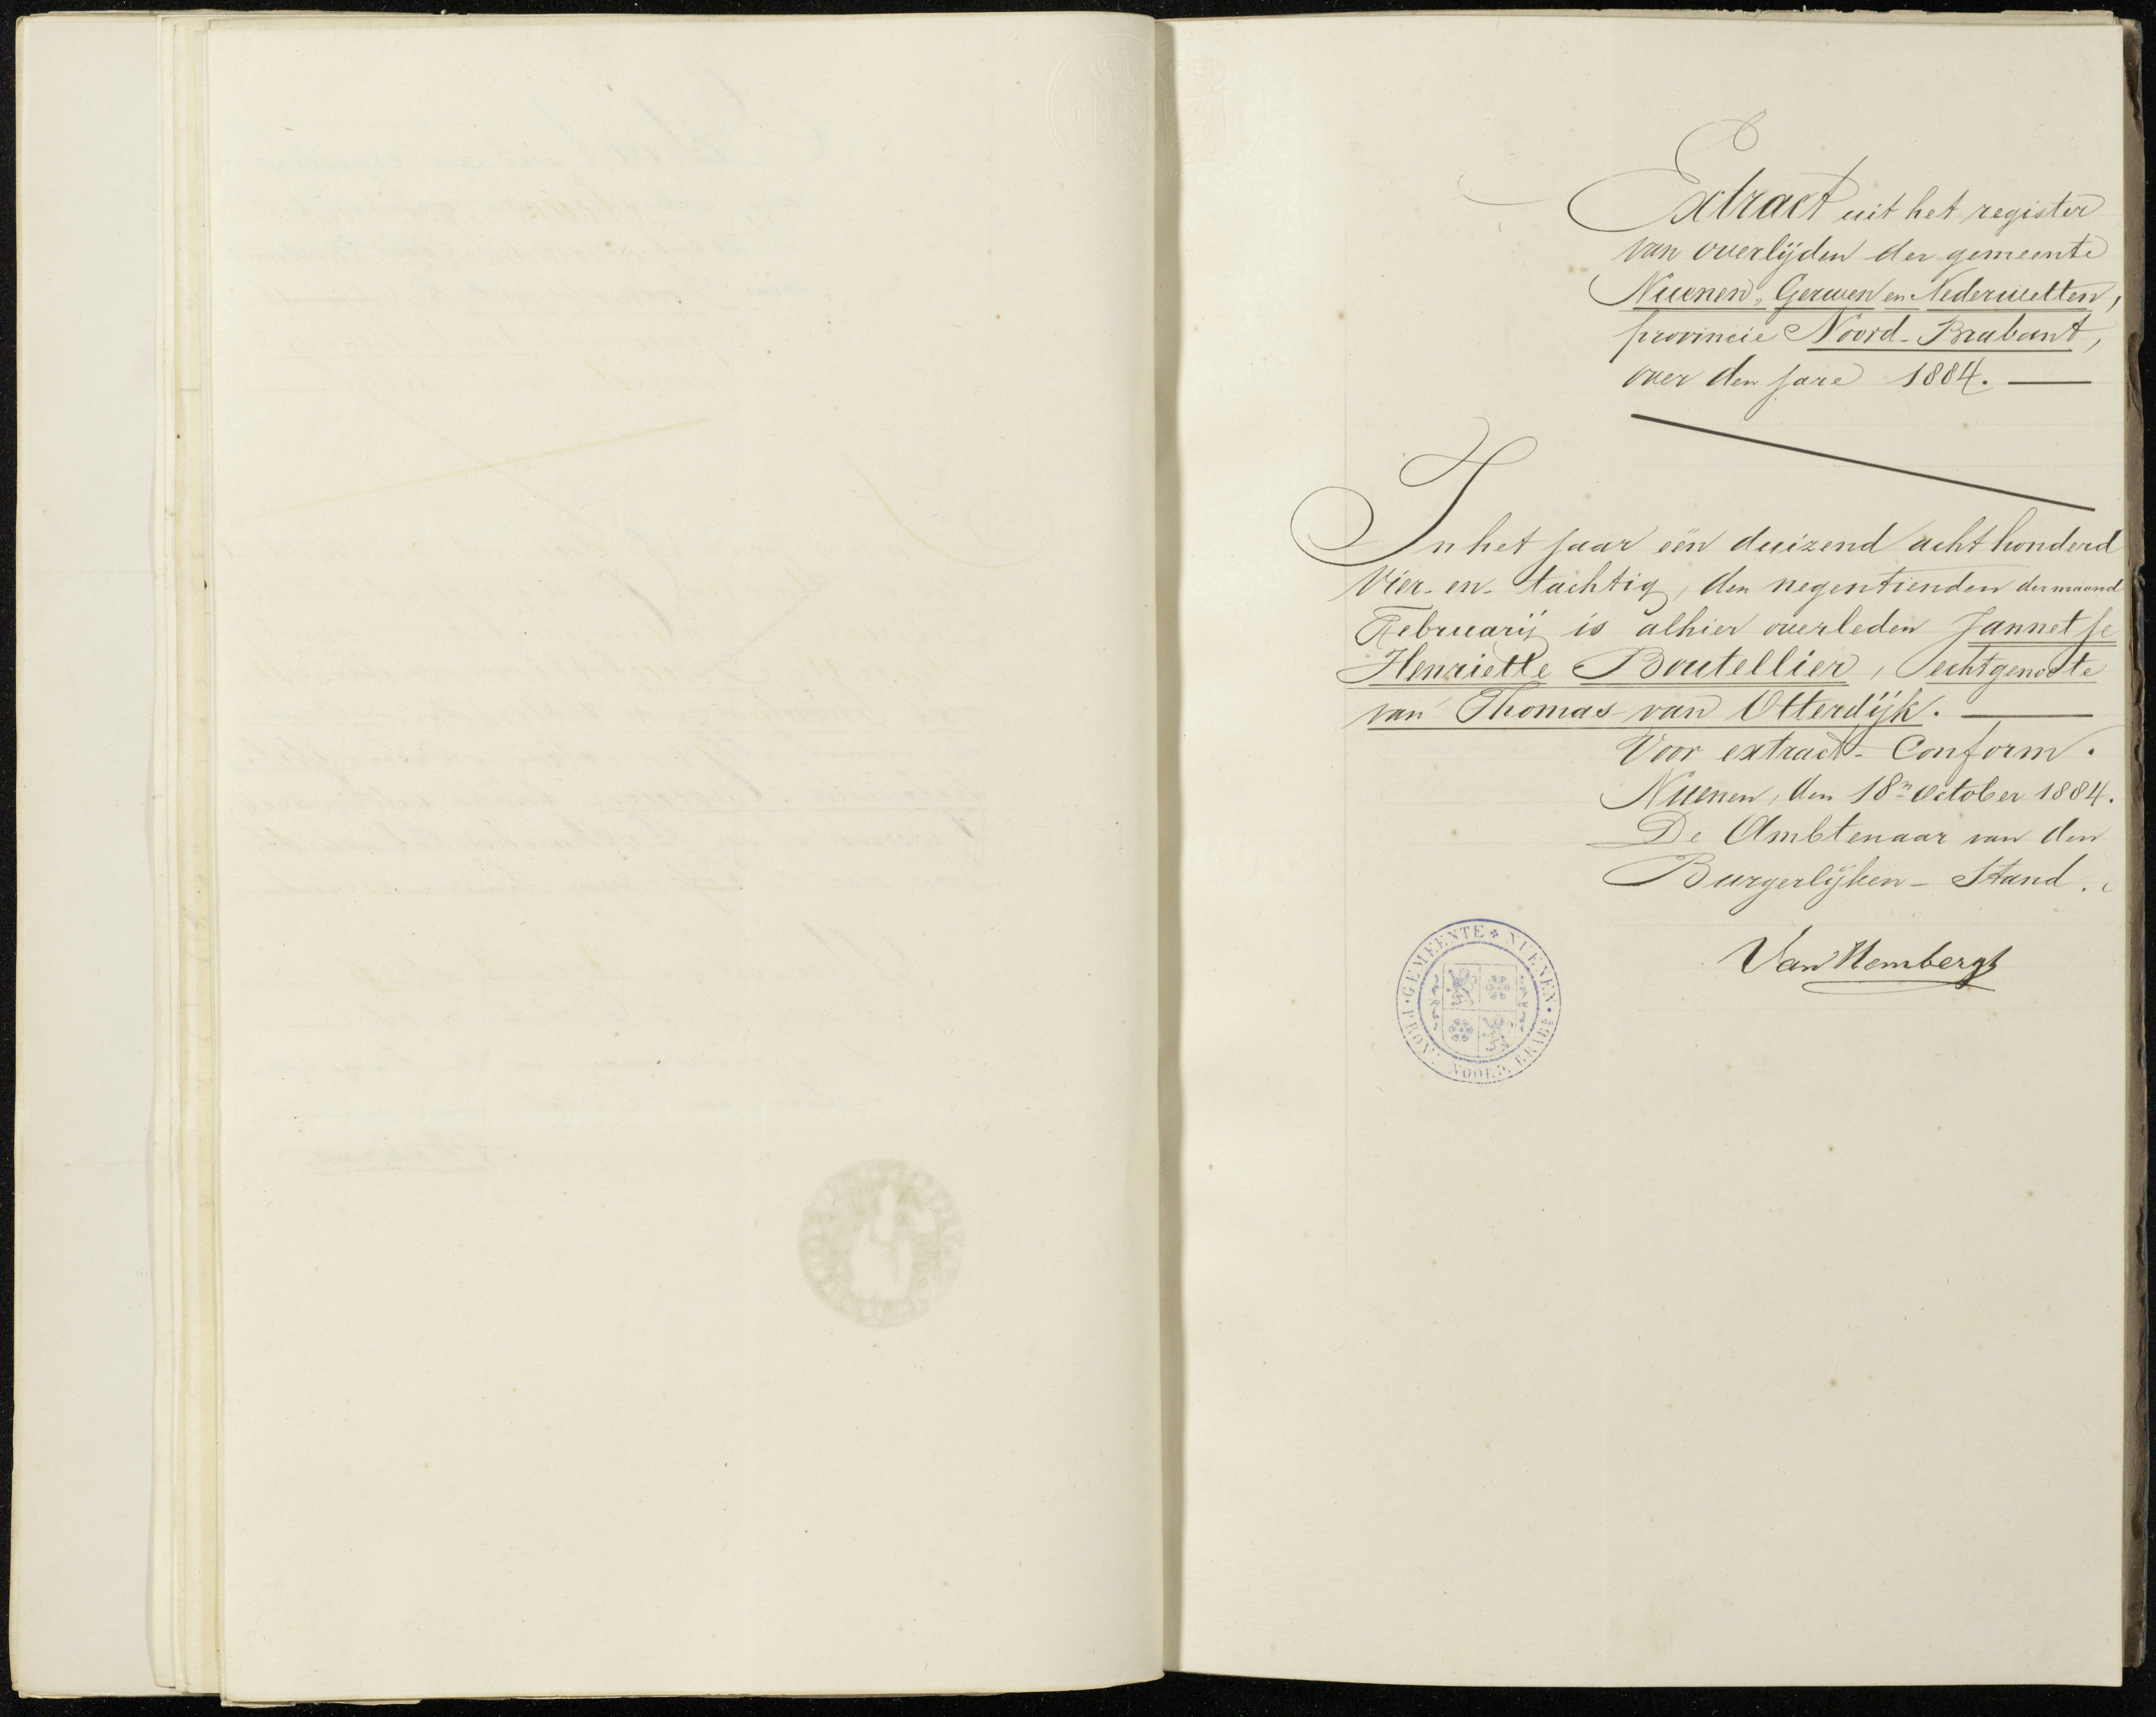 Extract uit het register
van overlijden der gemeente
Nuenen, Gerwen en Nederwetten,
provincie Noord-Brabant,
over den jare 1884.
In het jaar één duizend acht honderd
vier-en-tachtig, den negentienden der maand
Februarij is alhier overleden Jannetje
Henriette Boutellier, echtgenoote
van Thomas van Otterdijk.
Voor extract-Conform.
Nuenen, den 18n October 1884.
De Ambtenaar van den
Burgerlijken-Stand.
Van Hombergh
GEMEENTE * NUENEN • PROV. NOORD. BRABT •